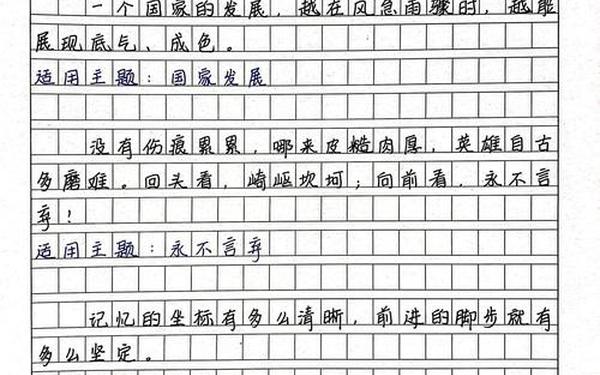 一个国家的发展，越在风急雨骤时，越能
展现底气、成色。
适用主题：国家发展
没有伤痕累累，哪来皮糙肉厚，英雄自古
多磨难。回头看，崎岖坎坷；向前看，永不言
弃！
适用主题：永不言弃
记忆的坐标有多么清晰，前进的脚步就有
多么坚定。